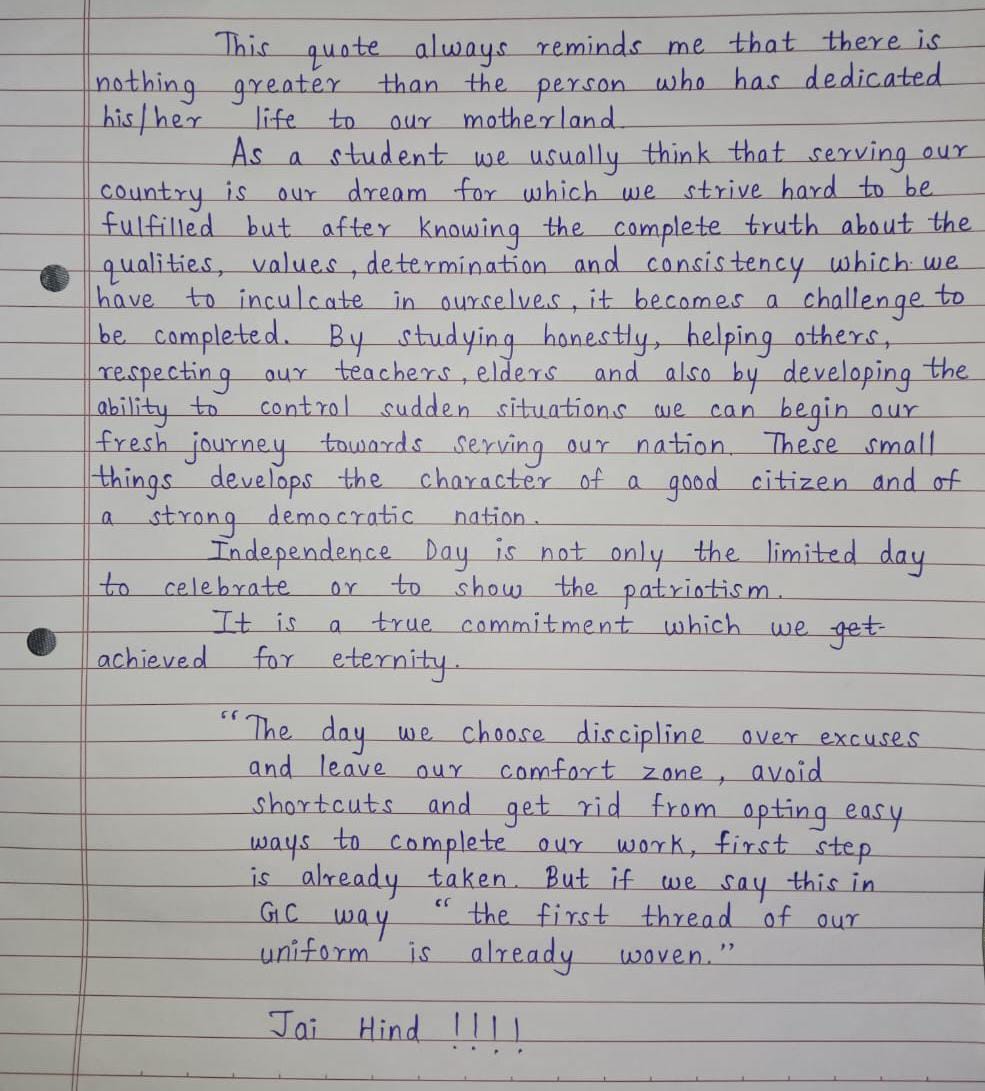 This quote always reminds me that there is
nothing greater than the person who has dedicated
his/her life to our motherland.
As a student we usually think that serving our
country is our dream for which we strive hard to be
fulfilled but after knowing the complete truth about the
qualities, values, determination and consistency which we
have to inculcate in ourselves, it becomes a challenge to
be completed. By studying honestly, helping others,
respecting our teachers, elders and also by developing the
ability to control sudden situations we can begin our
fresh journey towards serving our nation. These small
things develops the character of a good citizen and of
a strong democratic nation.
Independence Day is not only the limited day
to celebrate or to show the patriotism.
It is a true commitment which we get
achieved for eternity.
“The day we choose discipline over excuses
and leave our comfort zone, avoid
shortcuts and get rid from opting easy
ways to complete our work, first step
is already taken. But if we say this in
GC way “the first thread of our
uniform is already woven.”
Jai Hind !!!!